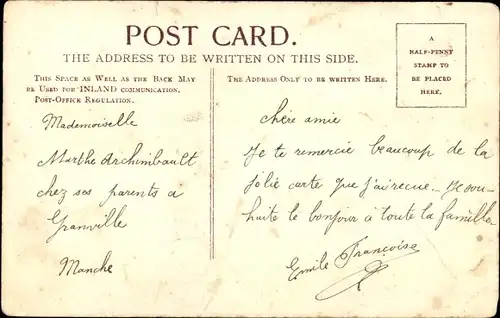 POST CARD.
THE ADDRESS TO BE WRITTEN ON THIS SIDE.
THIS SPACE AS WELL AS THE BACK MAY
BE USED FOR INLAND COMMUNICATION.
POST-OFFICE REGULATION.
THE ADDRESS ONLY TO BE WRITTEN HERE.
A
HALF-PENNY
STAMP TO
BE PLACED
HERE.
Mademoiselle
Marthe Archimbault
chez ses parents a
Granville
Manche
Chère amie
Je te remercie beaucoup de la
jolie carte que j'ai recue _ Je sou-
haite le bonjour à toute la famille
Emile Françoise